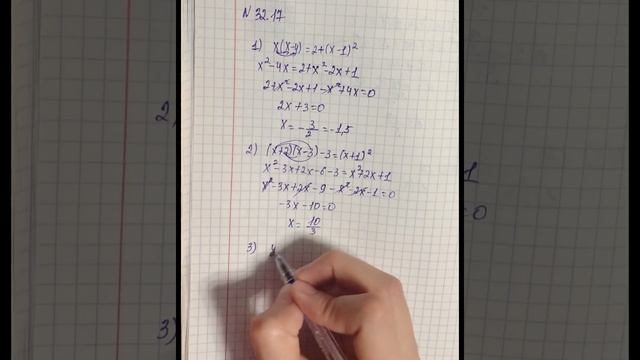 N 32.17
1) x(x-4)=2+(x-1)²
x²-4x=2+x²-2x+1
2+x²-2x+1-x²+4x=0
2x+3=0
x=-3/2=-1,5
2) (x+2)(x-3)-3=(x+1)²
x²-3x+2x-6-3=x²+2x+1
x²-3x+2x-9-x²-2x-1=0
-3x-10=0
x=10/3
3)
2)
3)
0